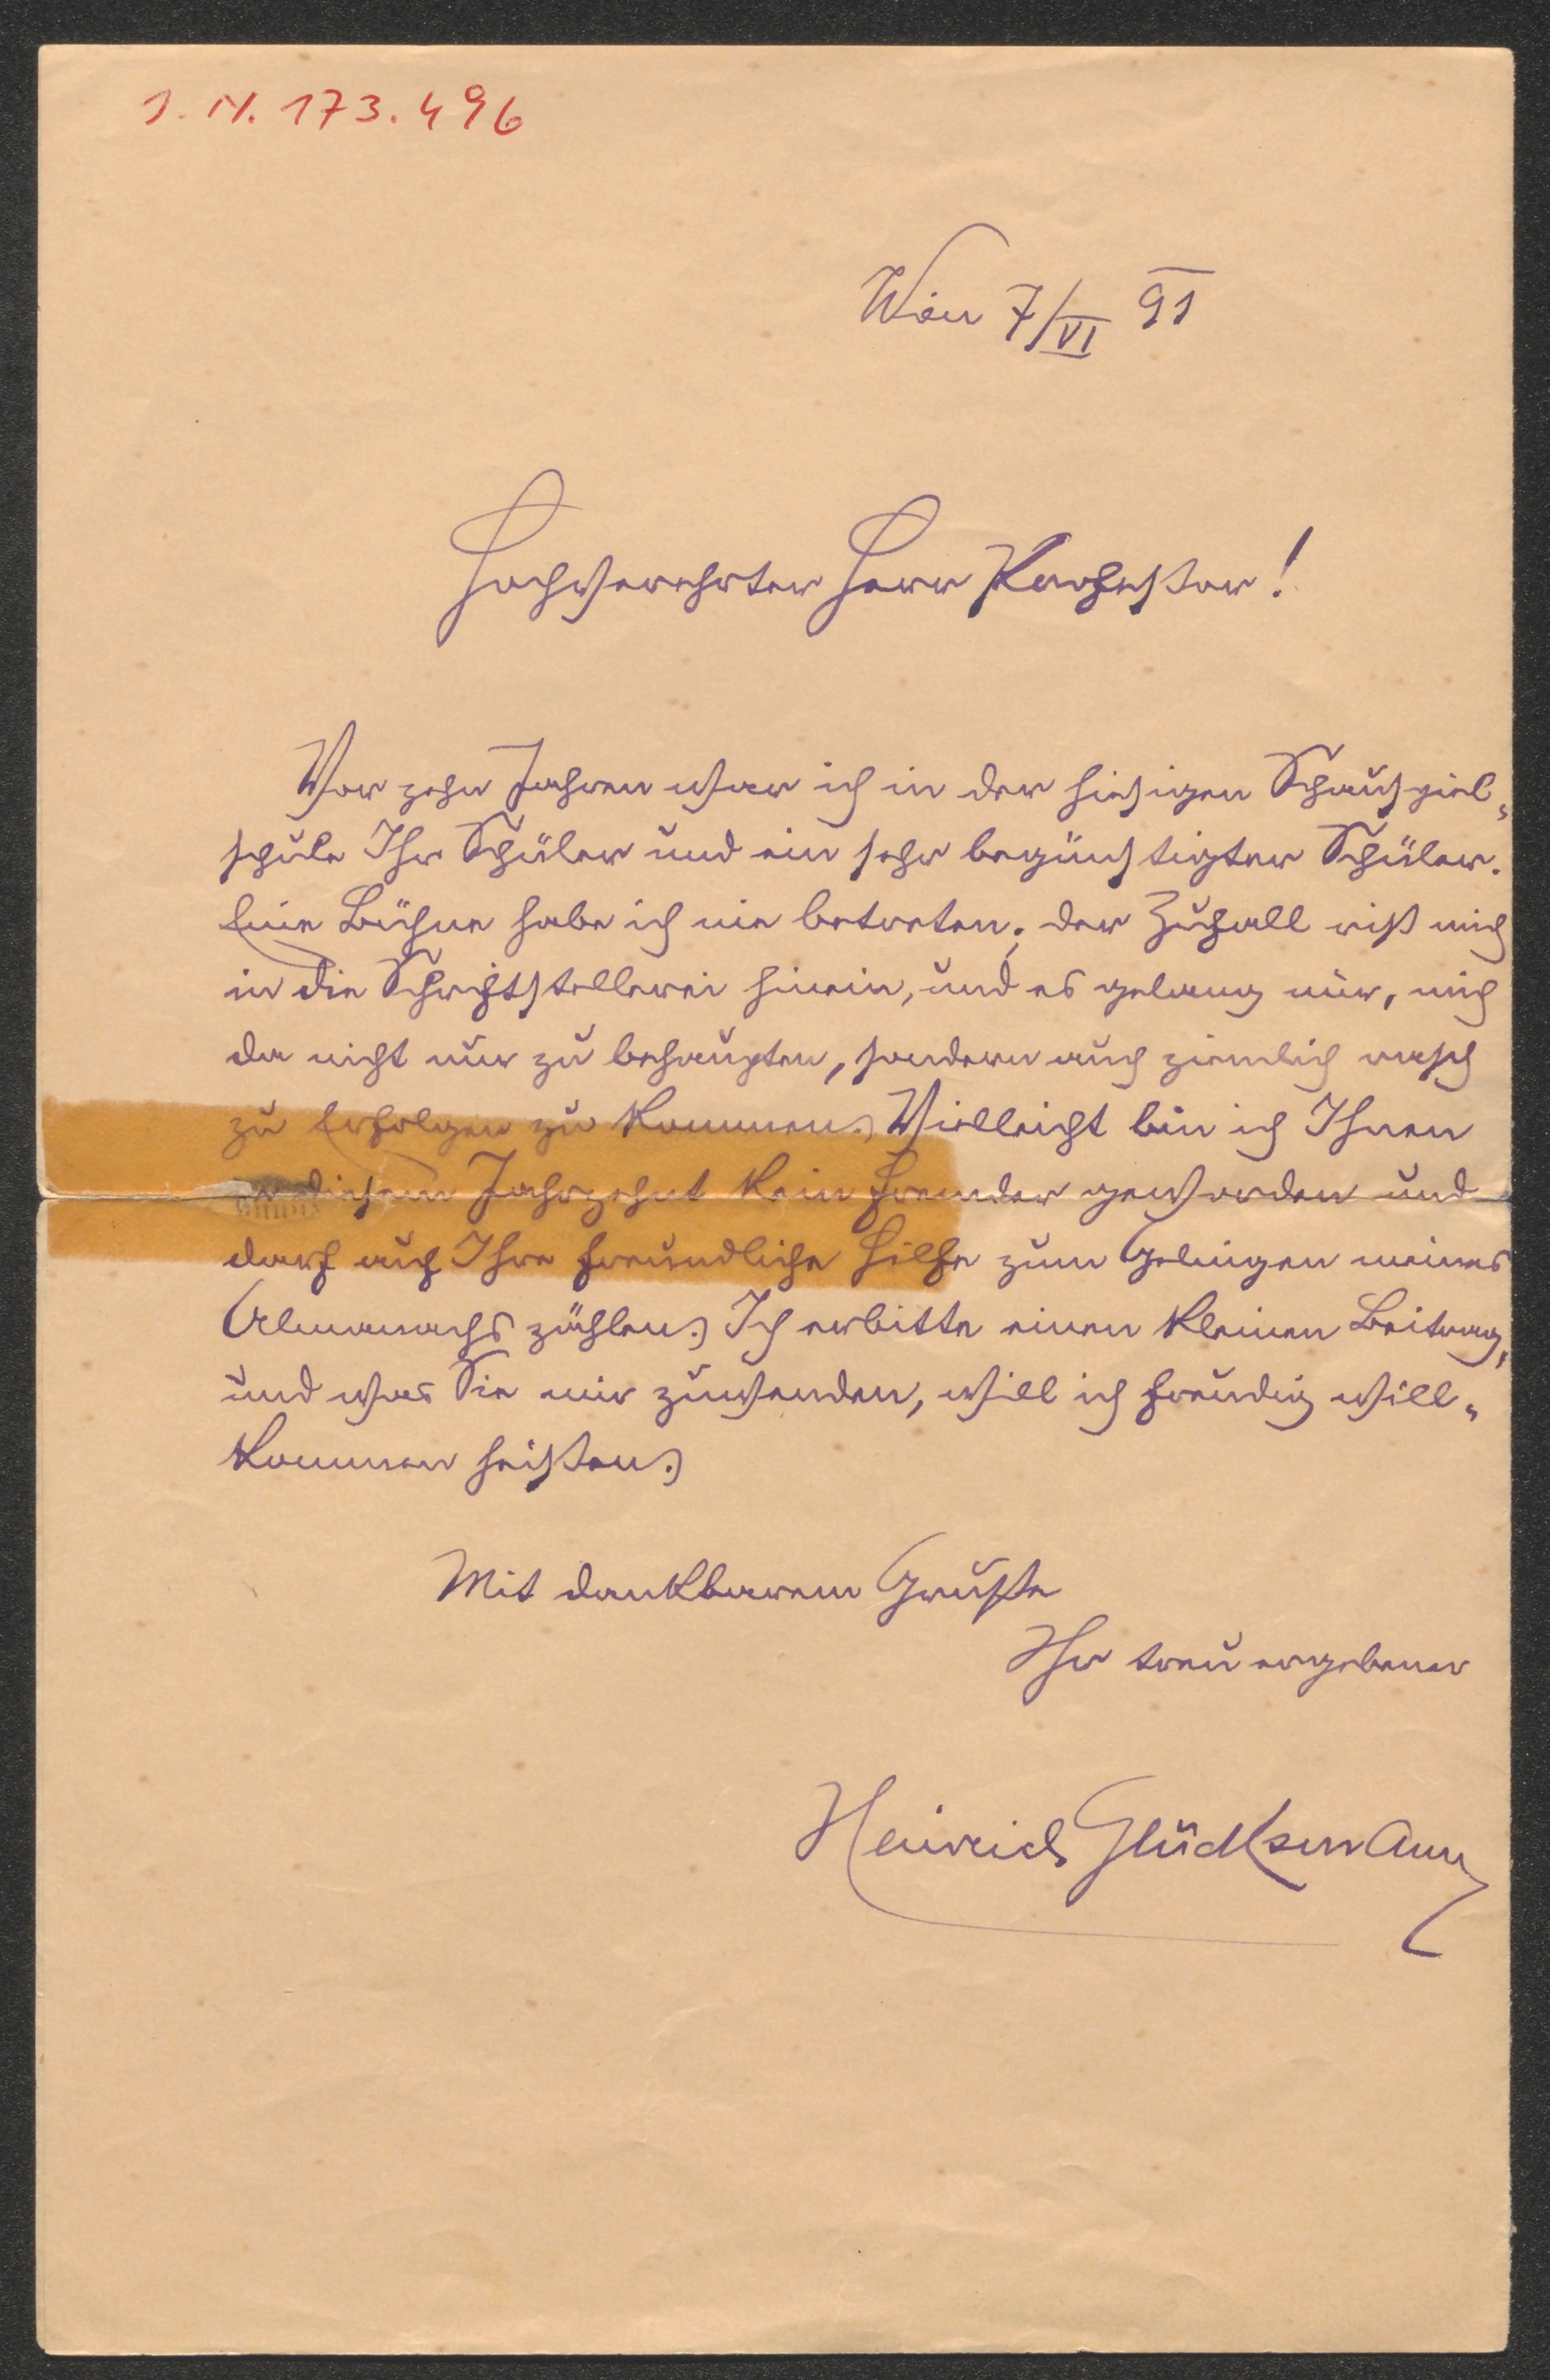 J. N. 173.496
Wien 7/VI 91
Hochverehrter Herr Professor!
Vor zehn Jahren war ich in der hiesigen Schauspiel-
schule Ihr Schüler und ein sehr begünstigter Schüler.
Eine Bühne habe ich nie betreten; der Zufall riß mich
in die Schriftstellerei hinein, und es gelang mir, mich
da nicht nur zu behaupten, sondern auch ziemlich rasch
zu Erfolgen zu kommen. Vielleicht bin ich Ihnen
in diesem Jahrzehnt kein Fremder geworden und
darf auf Ihre freundliche Hilfe zum Gelingen meines
Almanachs zählen. Ich erbitte einen kleinen Beitrag,
und was Sie mir zuwenden, will ich freudig will-
kommen heißen.
Mit dankbarem Gruße
Ihr treu ergebener
Heinrich Glücksmann